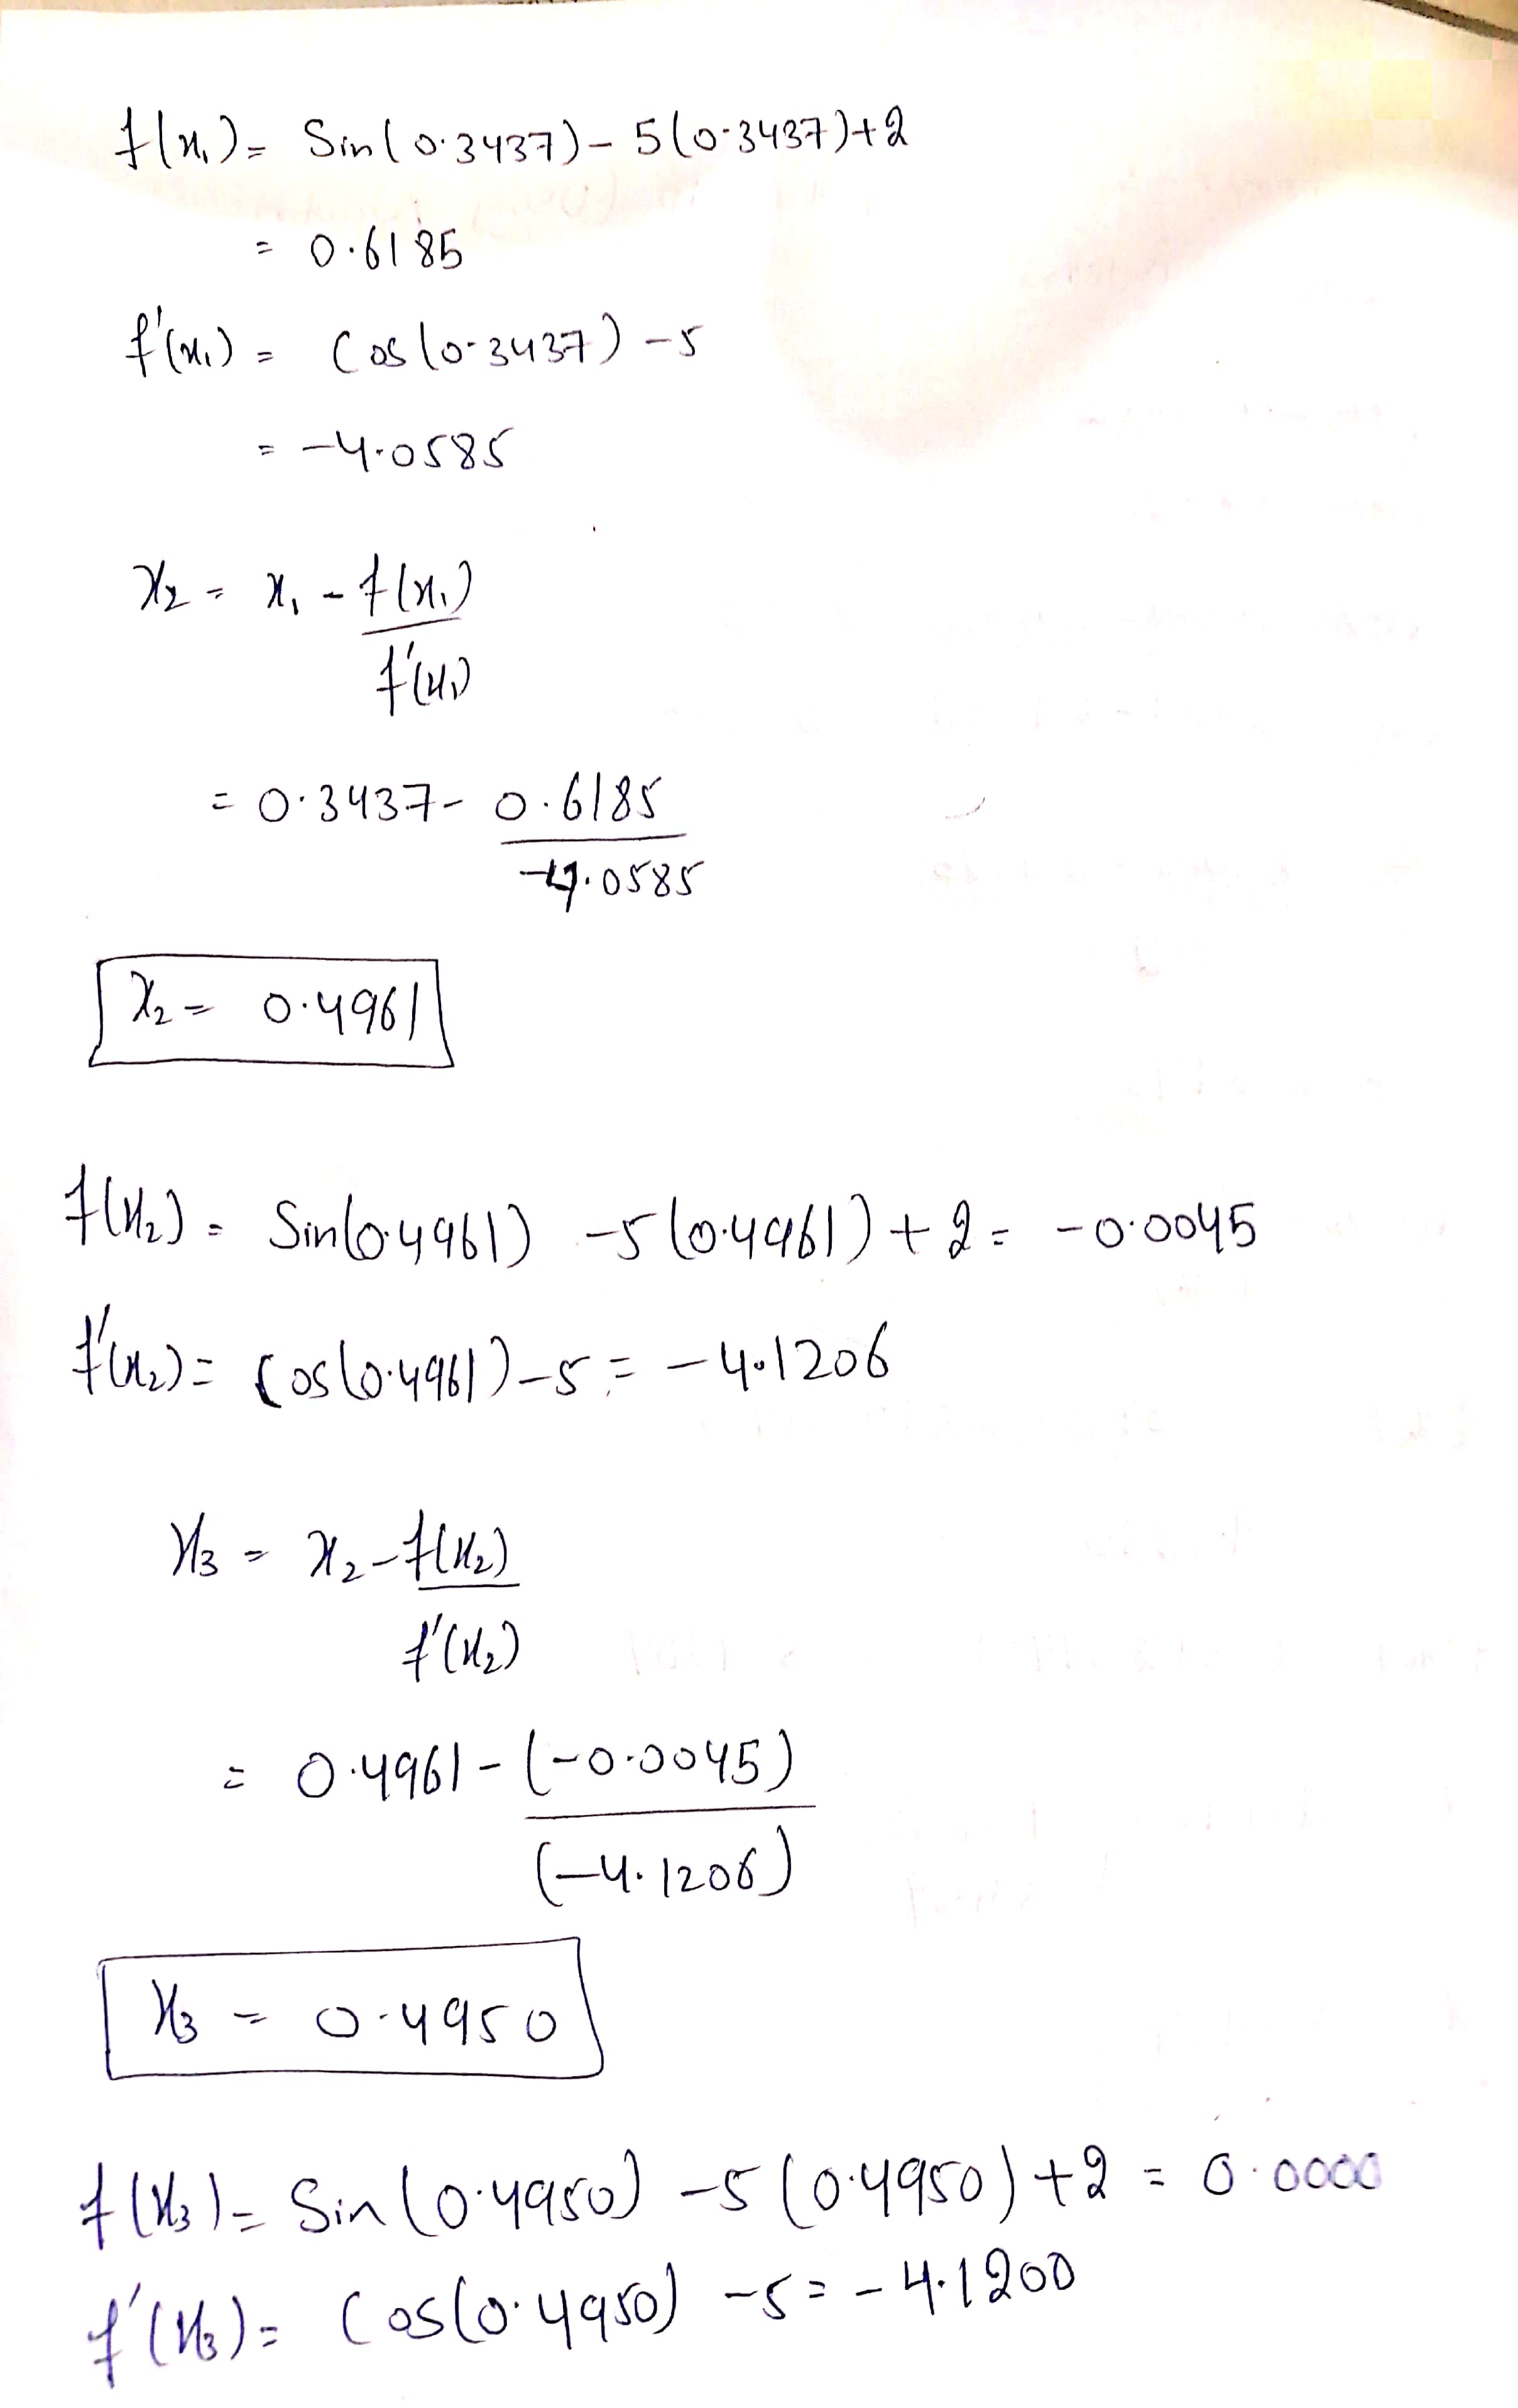 f(x₁) = Sin(0.3437) - 5(0.3437)+2
= 0.6185
f'(x₁) = Cos(0.3437) - 5
= -4.0585
x₂ = x₁ - f(x₁)
f'(x₁)
= 0.3437 - 0.6185
-4.0585
x₂ = 0.4961
f(x₂) = Sin(0.4961) - 5(0.4961) + 2 = -0.0045
f'(x₂) = Cos(0.4961) - 5 = -4.1206
x₃ = x₂ - f(x₂)
f'(x₂)
= 0.4961 - (-0.0045)
(-4.1206)
x₃ = 0.4950
f(x₃) = Sin(0.4950) - 5(0.4950) + 2 = 0.0000
f'(x₃) = Cos(0.4950) - 5 = -4.1200